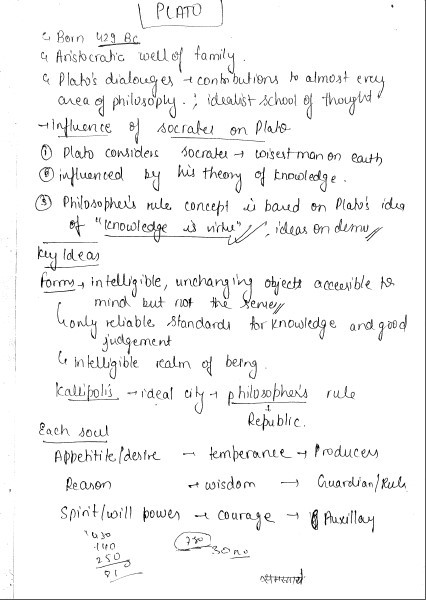 PLATO
Born 429 BC
Aristocratic well of family.
Plato's dialouges → contributions to almost every
area of philosophy. ; idealist school of thought
→ Influence of socrates on Plato
① Plato considers socrates → wisest man on earth
② influenced by his theory of knowledge.
③ Philosopher's rule concept is based on Plato's idea
of "knowledge is virtue" ; ideas on demo
Key Ideas
Forms → intelligible, unchanging objects accesible to
mind but not the sense
only reliable standards for knowledge and good
judgement
intelligible realm of being.
Kallipolis → ideal city → philosopher's rule
Republic.
Each soul
Appetitite/desire → temperance → Producers
Reason → wisdom → Guardian/Rule
Spirit/will power → courage → Auxillay
430
140
250
810
780
30